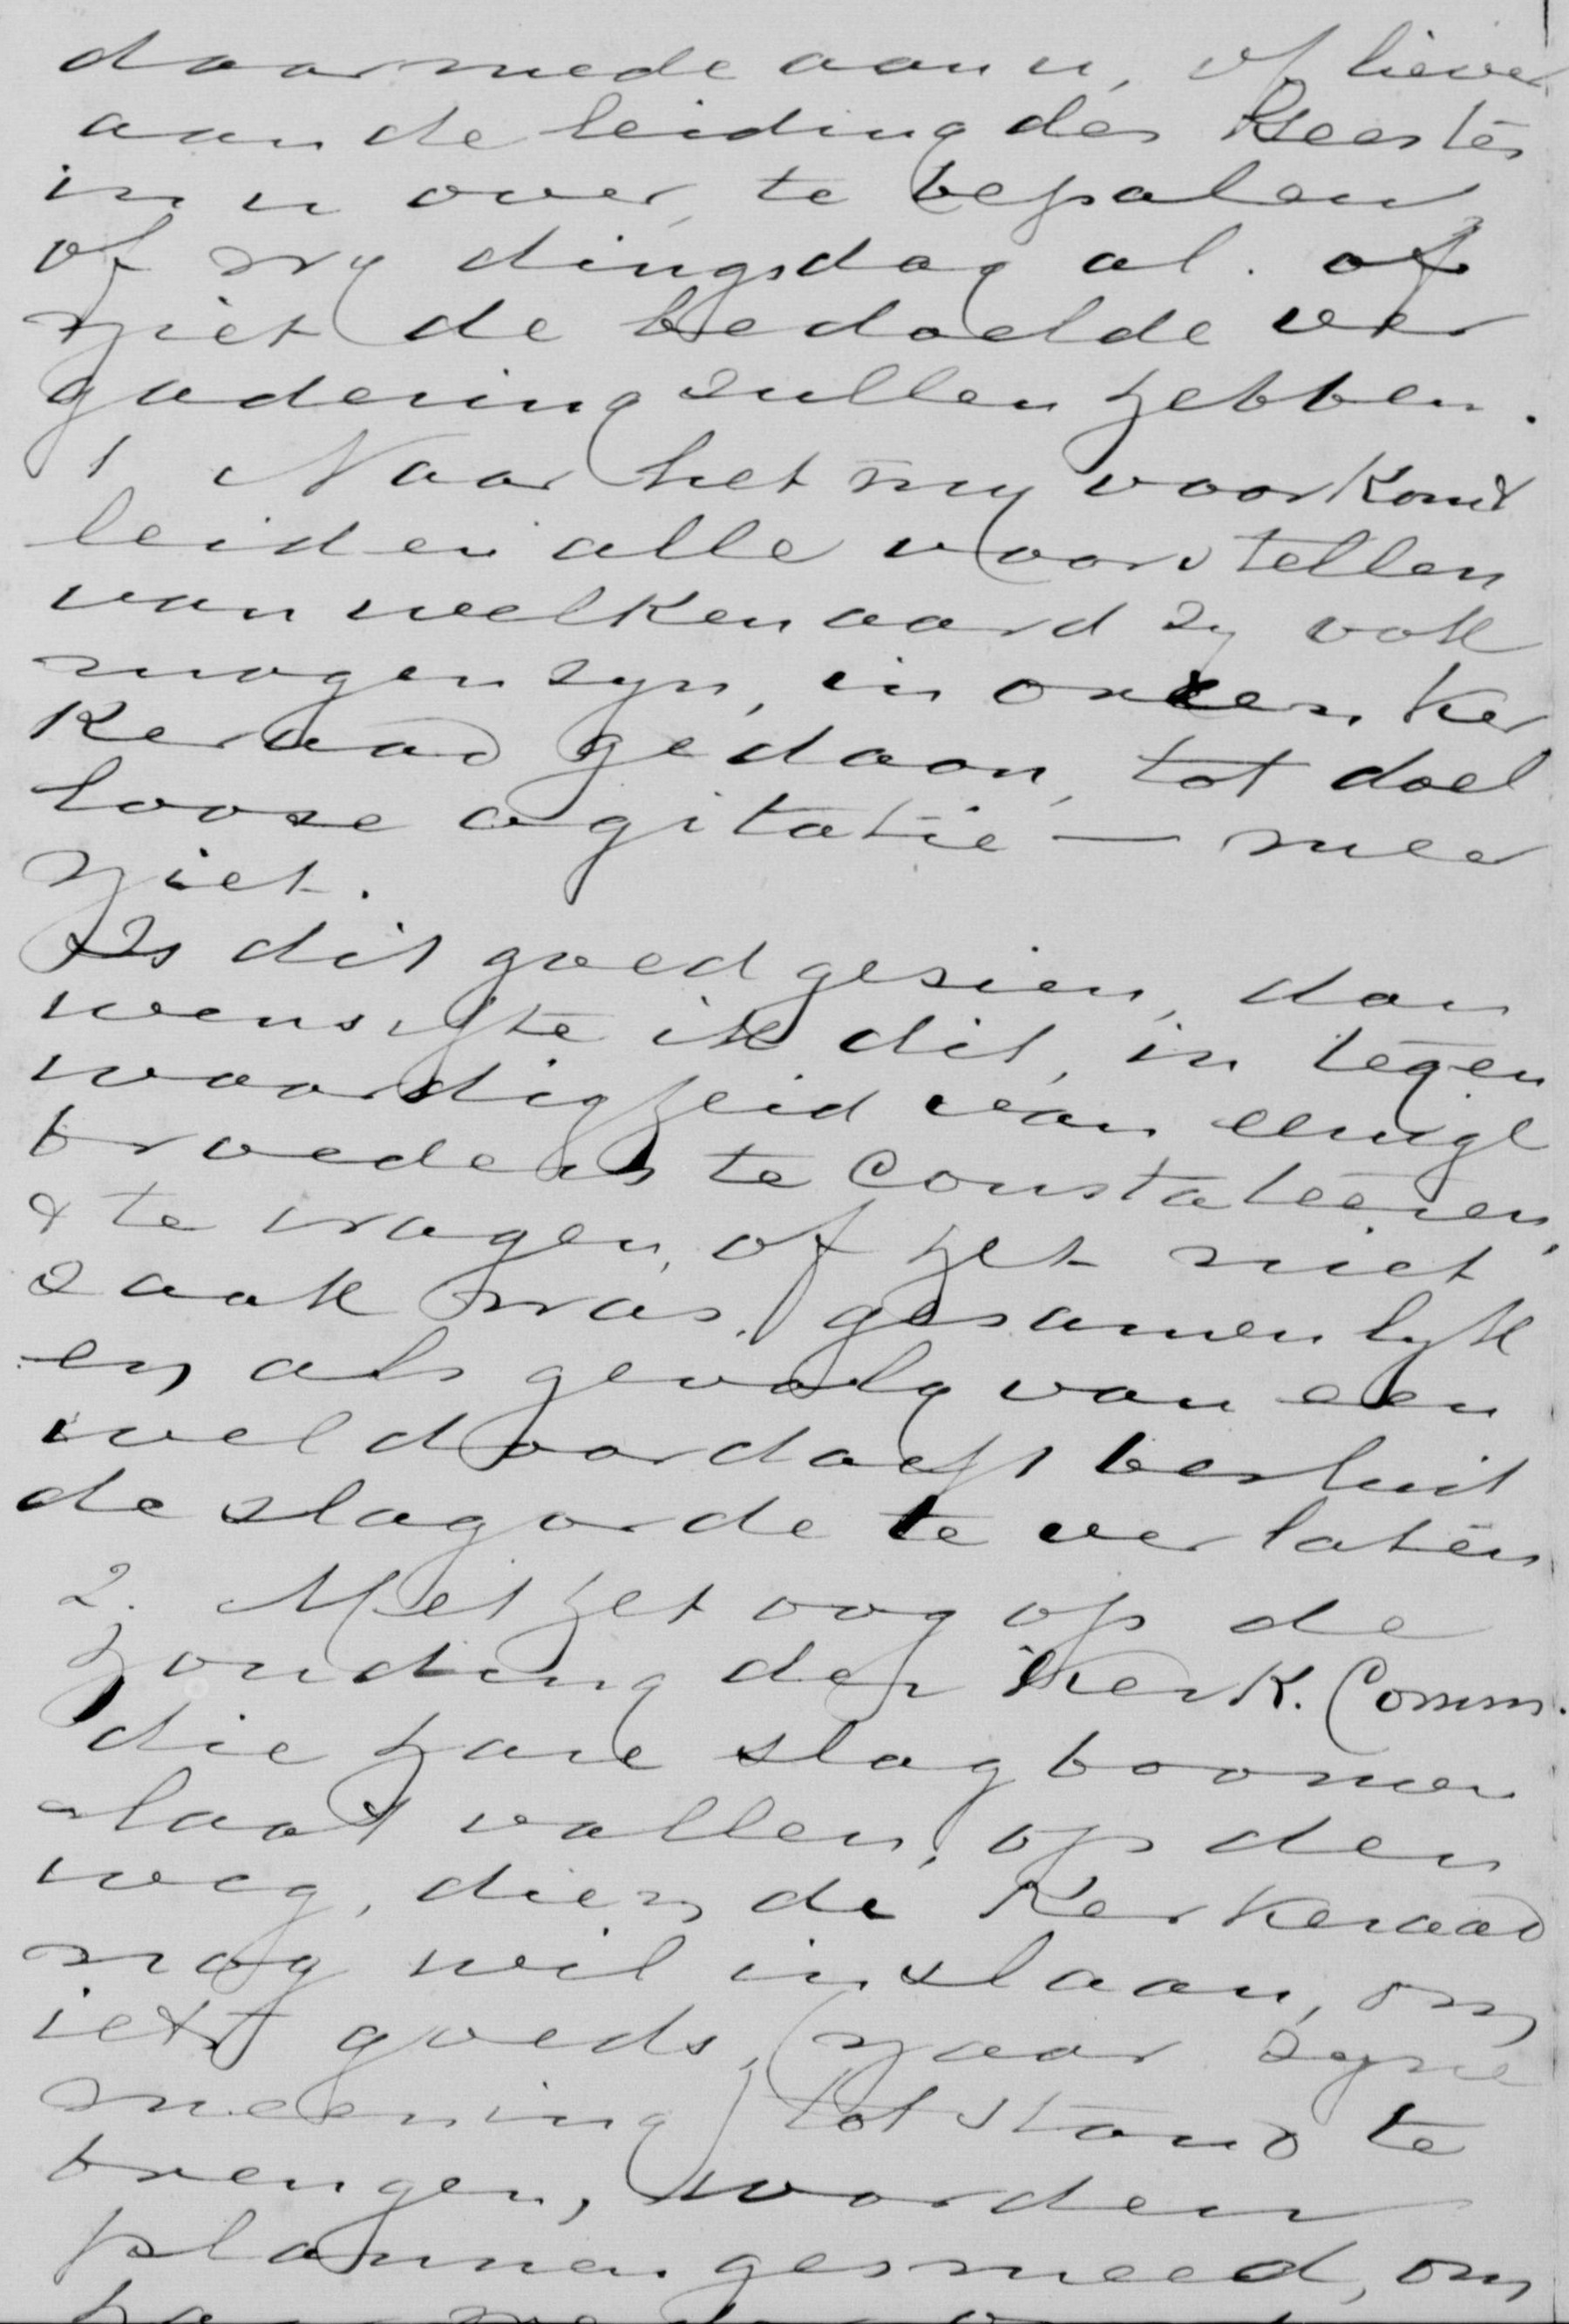 daarmede aan u, of liever
aan de leiding des Geestes
in u over, te bepalen
of wy dingsdag al. of
niet de bedoelde ver
gadering zullen hebben.
1 Naar het my voorkomt
leiden alle voorstellen
van welken aard zy ook
mogen zyn, in onzen Ker
keraad gedaan, tot doel
looze agitatie — meer
niet.
Is dit goed gezien, dan
wenschte ik dit, in tegen
woordigheid van eenige
broeders te Constateeren,
& te vragen, of het niet
zaak was, gezamenlyk
en als gevolg van een
weldoordacht besluit
de slagorde te verlaten
2. Met het oog op de
houding der Kerk. Comm.
die hare slagboomen
laat vallen, op den
weg, dien de Kerkeraad
nog wil inslaan, om
iets goeds, (naar zyne
meening) tot stand te
brengen, worden
plannen gesmeed, om